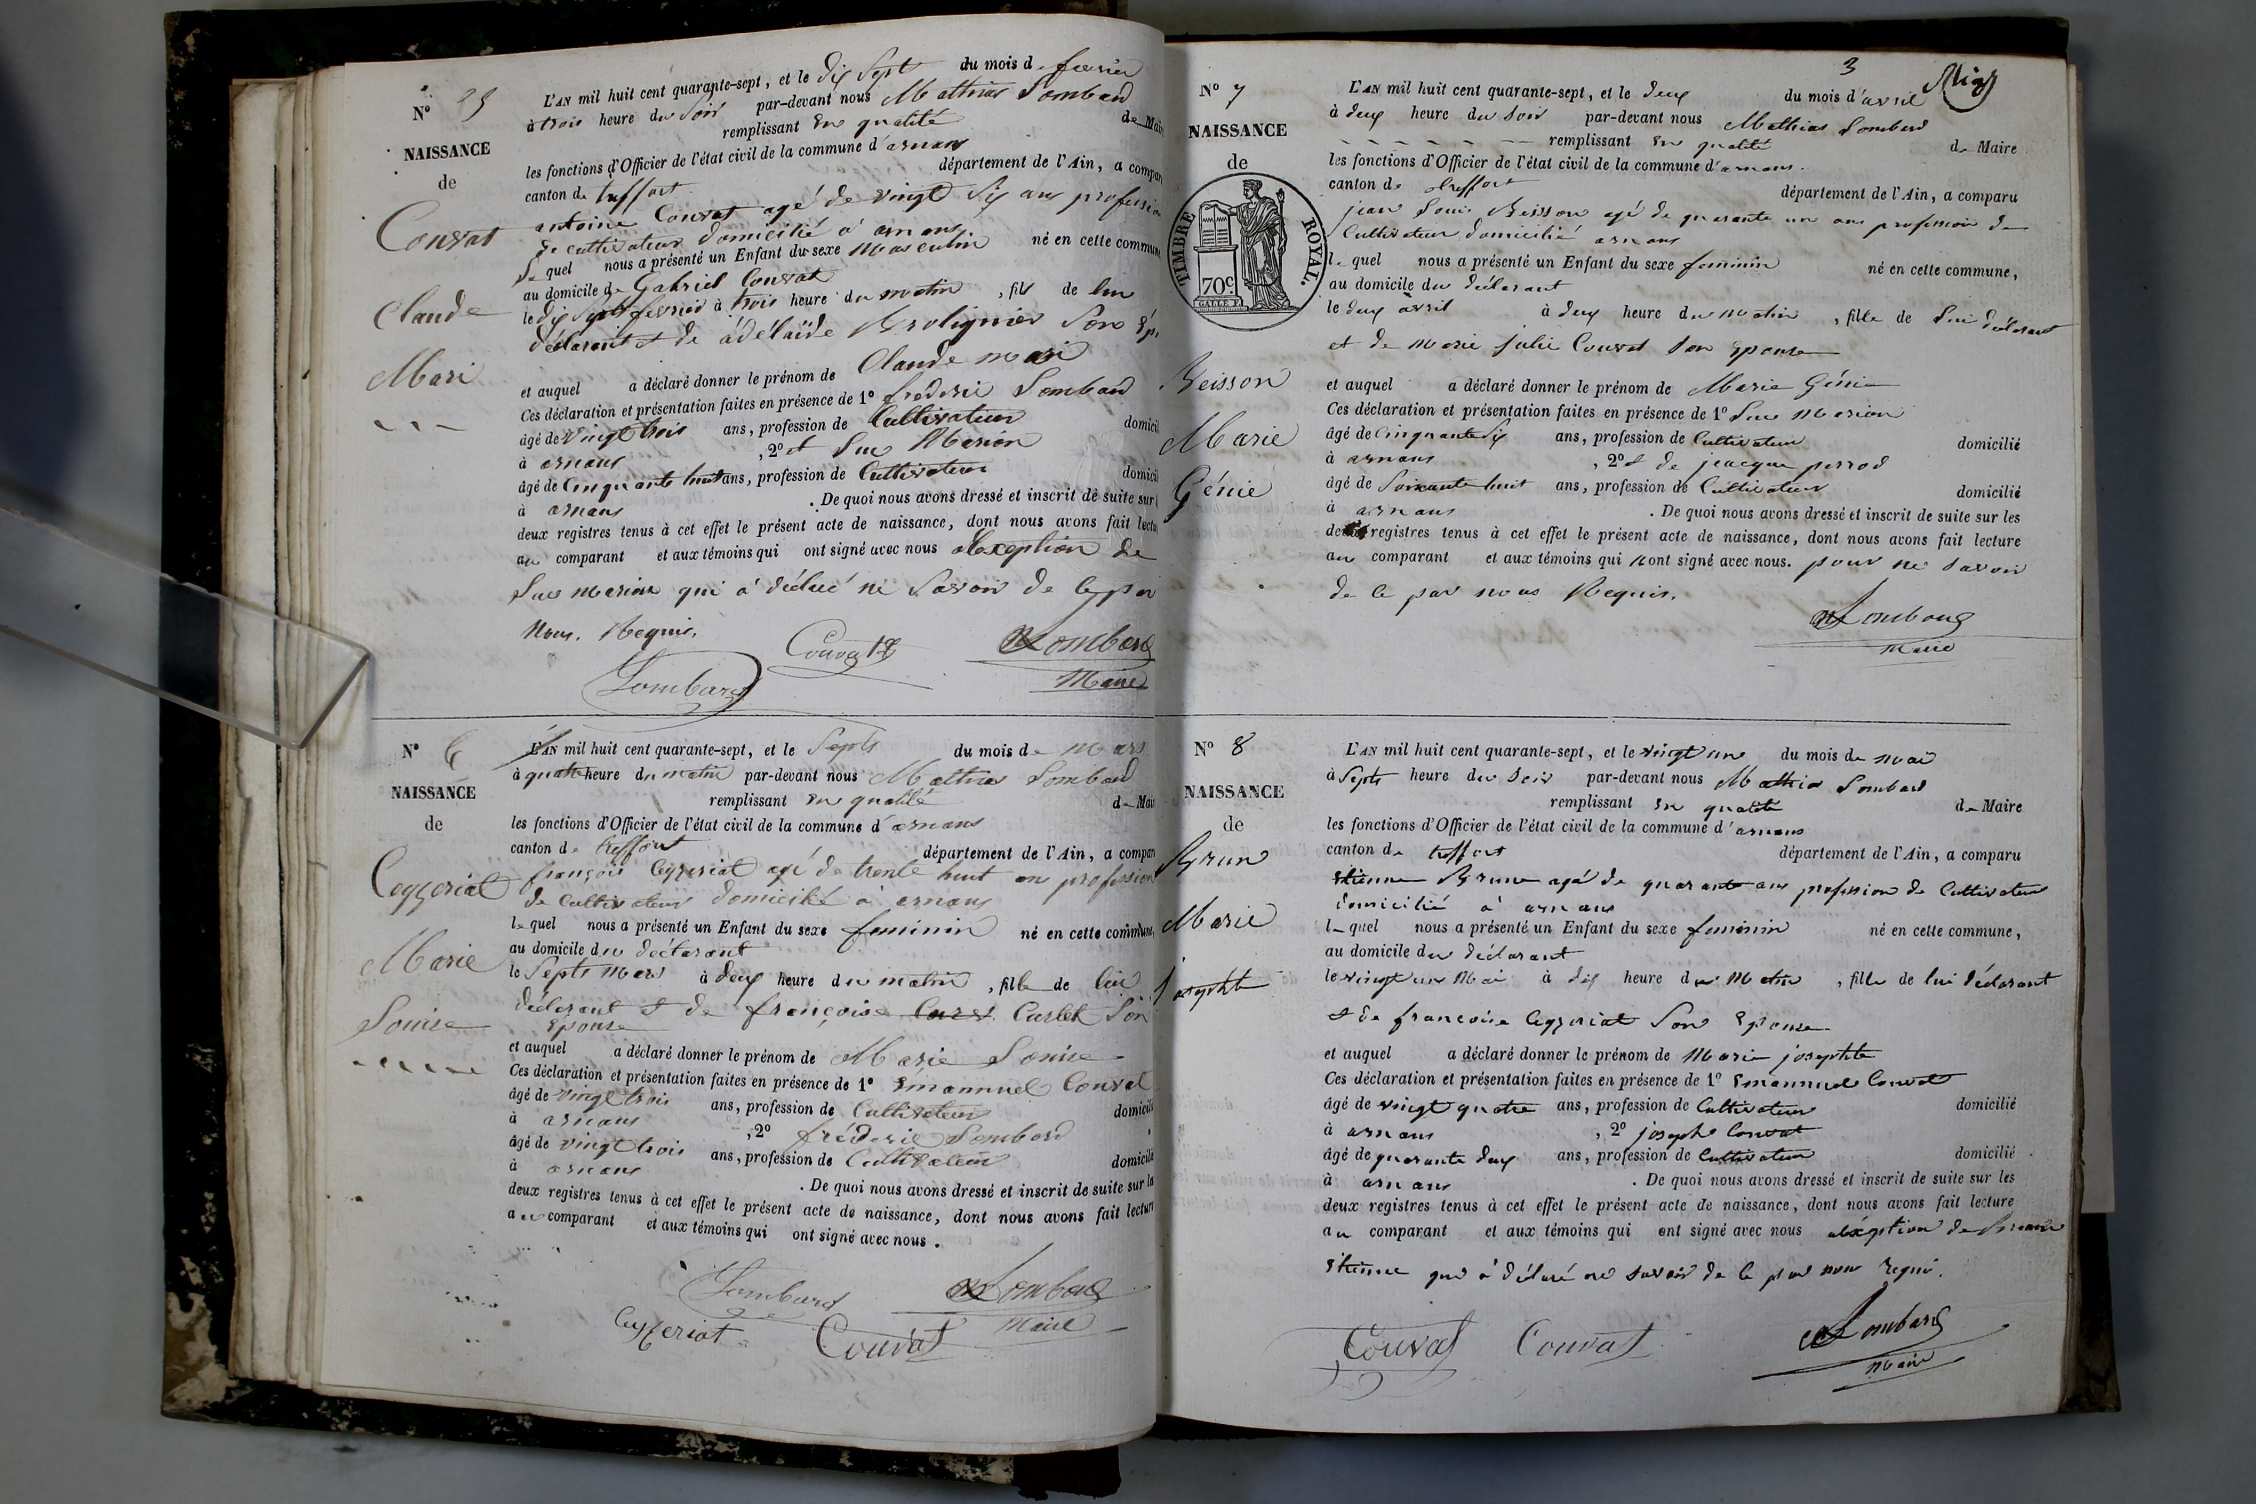 N°
NAISSANCE
de
Couvat
Claude
Mari
L'AN mil huit cent quarante-sept, et le dix Sept du mois de fevrier
à trois heure du Soir par-devant nous Mathias Lombard
remplissant En qualité de Mair
les fonctions d'Officier de l'état civil de la commune d'arnans
canton de treffort département de l'Ain, a compar
antoine Couvat agé de vingt Six ans profession
de cultivateur domicilié à arnans
Le quel nous a présenté un Enfant du sexe Masculin né en cette commune
au domicile de Gabriel Couvat
le dix Sept fevrier à trois heure du matin , fils de lui
déclarant et de adélaïde Son Ep
et auquel a déclaré donner le prénom de Claude mari
Ces déclaration et présentation faites en présence de 1° frederic Lombard
âgé de vingt trois ans, profession de Cultivateur domicil
à arnans , 2° et Luc Marion
âgé de Cinquante huit ans, profession de Cultivateur domicil
à arnans . De quoi nous avons dressé et inscrit de suite sur l
deux registres tenus à cet effet le présent acte de naissance, dont nous avons fait lectu
au comparant et aux témoins qui ont signé avec nous alaxception de
Luc marion qui à déclaré ne Savoir de le par
Nous. Requis.
Couvat
MLombard
Lombard
Maire
N° 6
NAISSANCE
de
Ceyzeriat
Marie
Louise
L'AN mil huit cent quarante-sept, et le Septs du mois de Mars
à quatre heure du matin par-devant nous Mathias Lombard
remplissant En qualité de Mair
les fonctions d'Officier de l'état civil de la commune d'arnans
canton de treffort département de l'Ain, a compar
françois Ceyzeriat agé de trente huit an profession
de Cultivateur domicilié à arnans
le quel nous a présenté un Enfant du sexe feminin né en cette commune,
au domicile du déclarant
le Septs Mars à deux heure du matin , fille de lui
déclarant et de françoise Carlet Son
Epouse
et auquel a déclaré donner le prénom de Marie Louise
Ces déclaration et présentation faites en présence de 1° Emannuel Couvat
âgé de vingt trois ans, profession de Cultivateur domicilié
à arnans , 2° fréderic Lombard
âgé de vingt trois ans, profession de Cultivateur domicilié
à arnans . De quoi nous avons dressé et inscrit de suite sur la
deux registres tenus à cet effet le présent acte de naissance, dont nous avons fait lecture
au comparant et aux témoins qui ont signé avec nous .
Lombard
MLombard
Ceyzeriat
Couvat
Maire
3
N° 7
NAISSANCE
de
TIMBRE ROYAL.
70c.
GALLE F.
Beisson
Marie
Génie
L'AN mil huit cent quarante-sept, et le deux du mois d'avril
à deux heure du soir par-devant nous Mathias Lombard
remplissant En qualité de Maire
les fonctions d'Officier de l'état civil de la commune d'arnans.
canton de treffort département de l'Ain, a comparu
jean Louis Beisson agé de quarante un ans profession de
Cultivateur domicilié arnans
le quel nous a présenté un Enfant du sexe feminin né en cette commune,
au domicile du déclarant
le deux avril à deux heure du matin , fille de Lui déclarant
et de marie julie Couvat Son Epouse
et auquel a déclaré donner le prénom de Marie Génie
Ces déclaration et présentation faites en présence de 1° Luc Marion
âgé de Cinquante Six ans, profession de Cultivateur domicilié
à arnans , 2° et de jeacque perrod
âgé de Soixante huit ans, profession de Cultivateur domicilié
à arnans . De quoi nous avons dressé et inscrit de suite sur les
deux registres tenus à cet effet le présent acte de naissance, dont nous avons fait lecture
au comparant et aux témoins qui nont signé avec nous. pour ne savoir
de le par nous Requis.
MLombard
Maire
N° 8
NAISSANCE
de
Brun
Marie
josephte
L'AN mil huit cent quarante-sept, et le vingt un du mois de mai
à Septs heure du Soir par-devant nous Mathias Lombard
remplissant En qualité de Maire
les fonctions d'Officier de l'état civil de la commune d'arnans
canton de treffort département de l'Ain, a comparu
Etienne Brun agé de quarante ans profession de Cultivateur
domicilié à arnans
le quel nous a présenté un Enfant du sexe feminin né en cette commune,
au domicile du déclarant
le vingt un Mai à dix heure du Matin , fille de lui déclarant
et de francoise Ceyzeriat Son Epouse
et auquel a déclaré donner le prénom de Marie josephte
Ces déclaration et présentation faites en présence de 1° Emannuel Couvat
âgé de vingt quatre ans, profession de Cultivateur domicilié
à arnans , 2° joseph Couvat
âgé de quarante deux ans, profession de Cultivateur domicilié
à arnans . De quoi nous avons dressé et inscrit de suite sur les
deux registres tenus à cet effet le présent acte de naissance, dont nous avons fait lecture
au comparant et aux témoins qui ont signé avec nous de
Etienne que à déclaré ne savoir de le par nous Requi.
Couvat
Couvat
MLombard
Maire